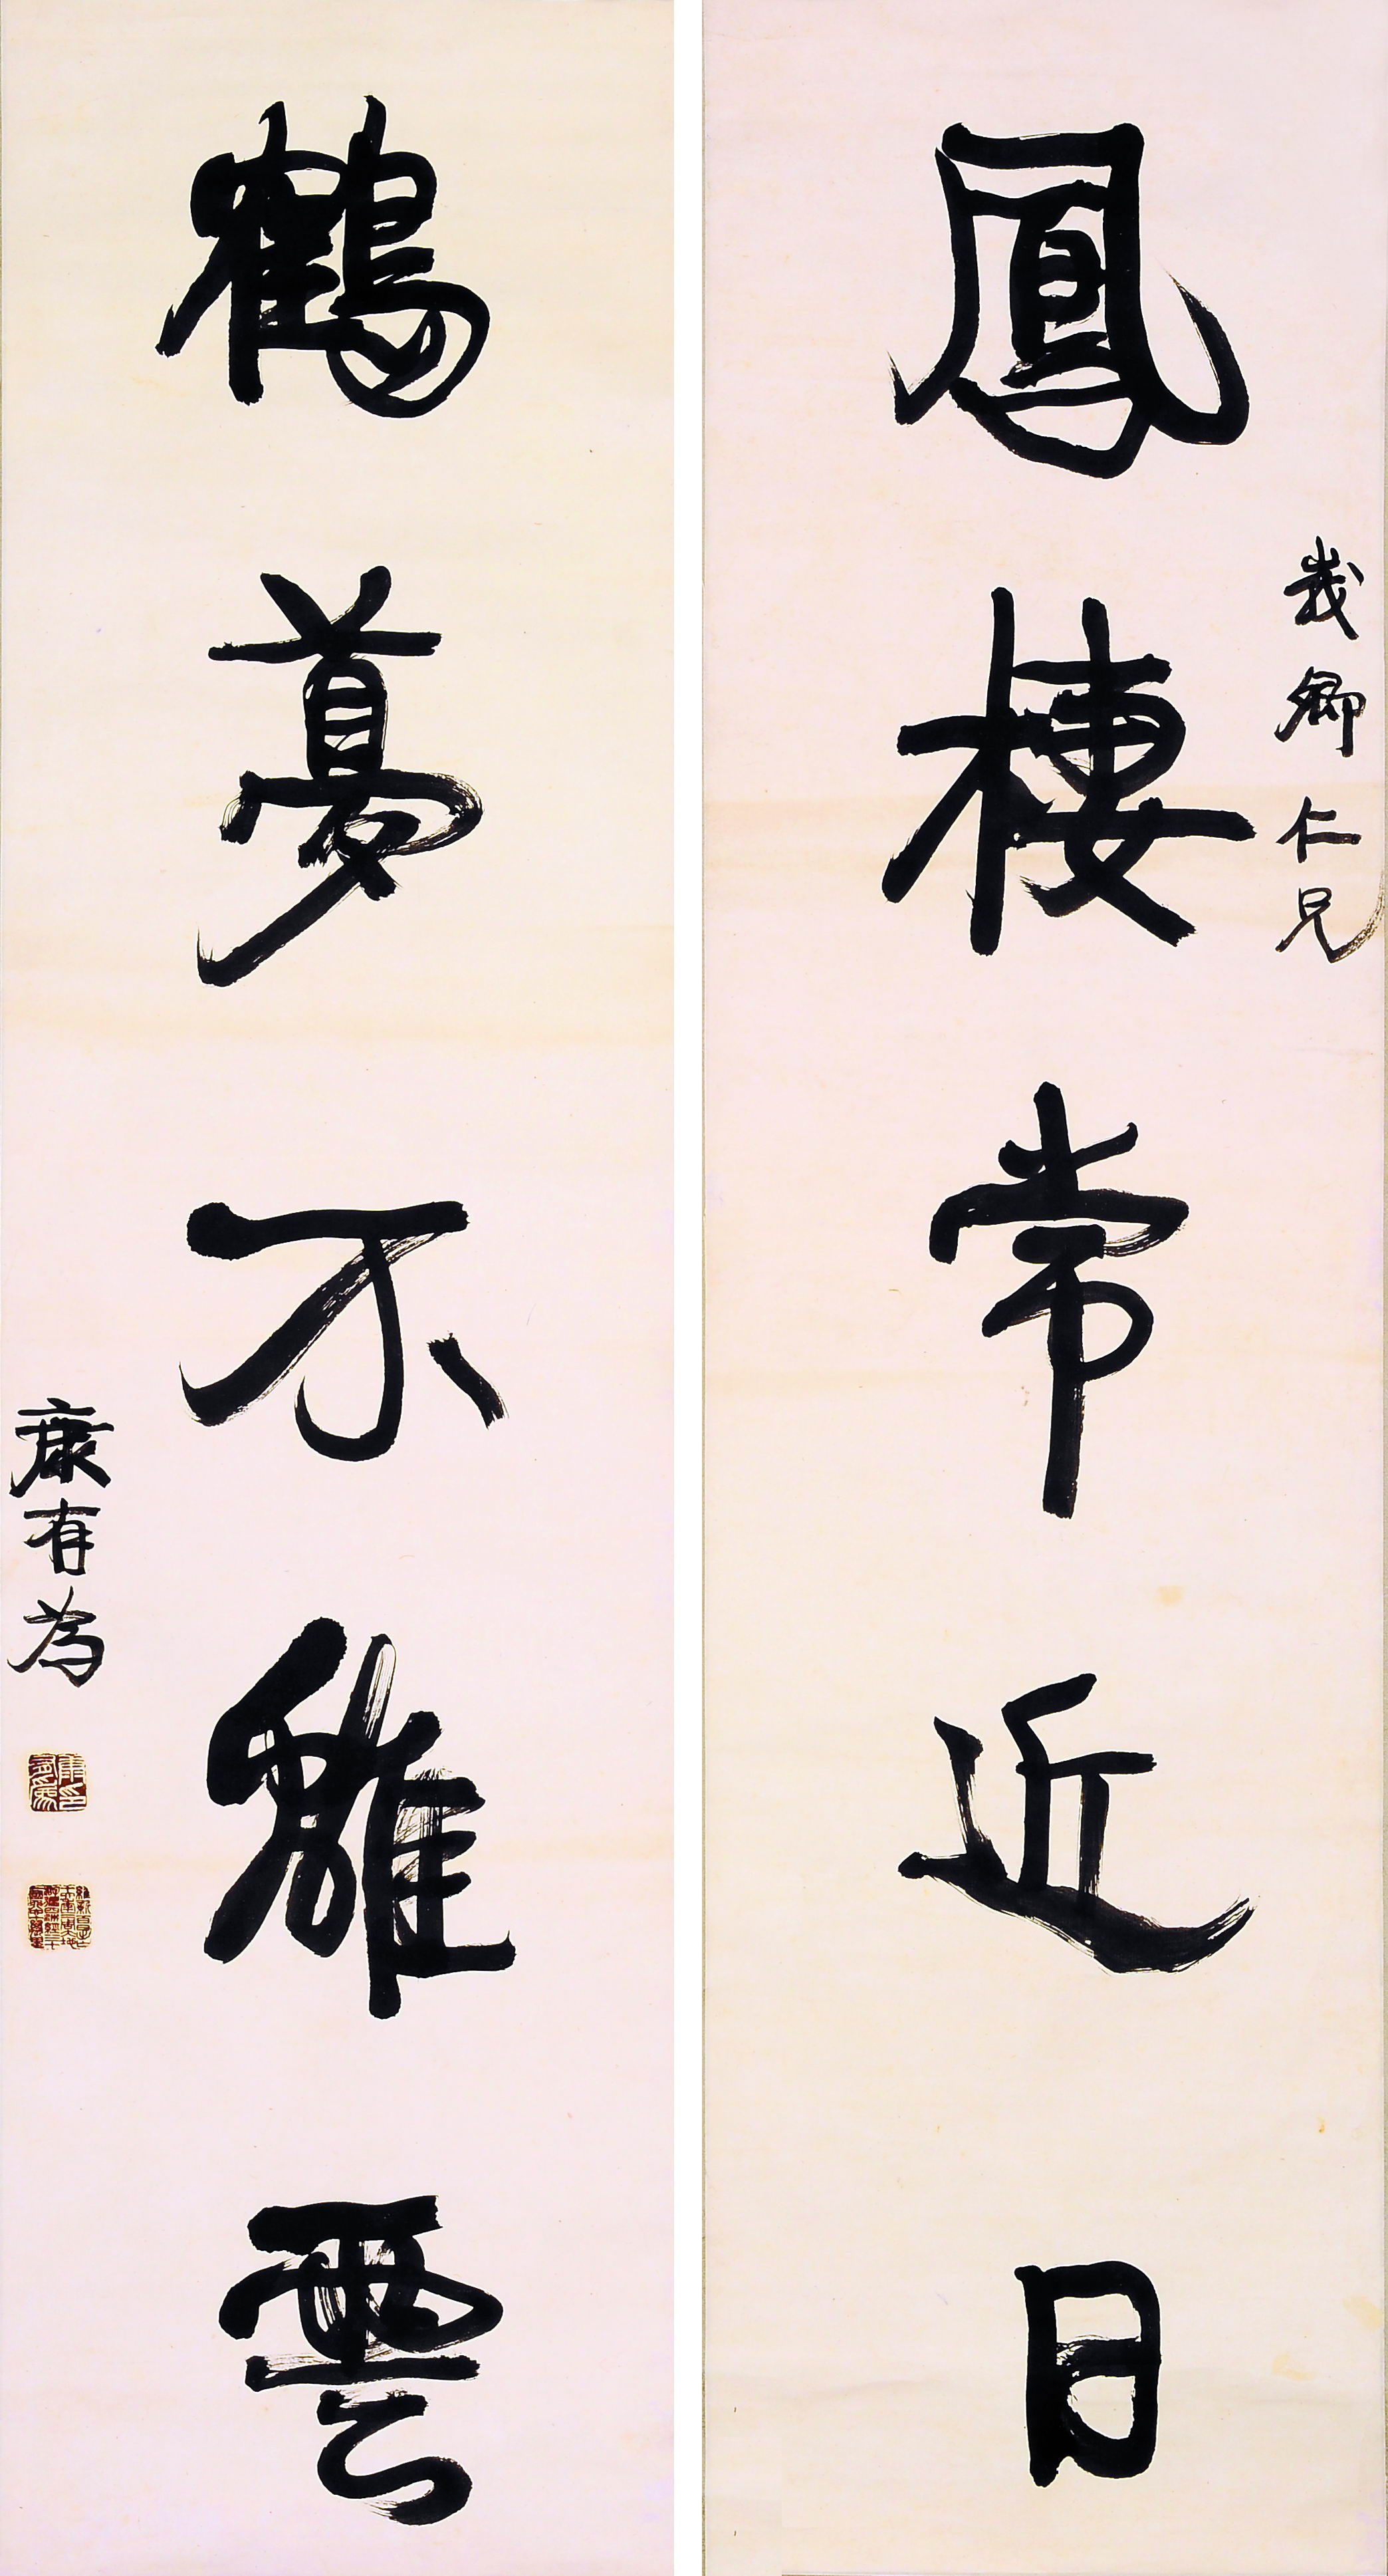 鳳棲常近日
幾卿仁兄
鶴夢不離雲
康有為